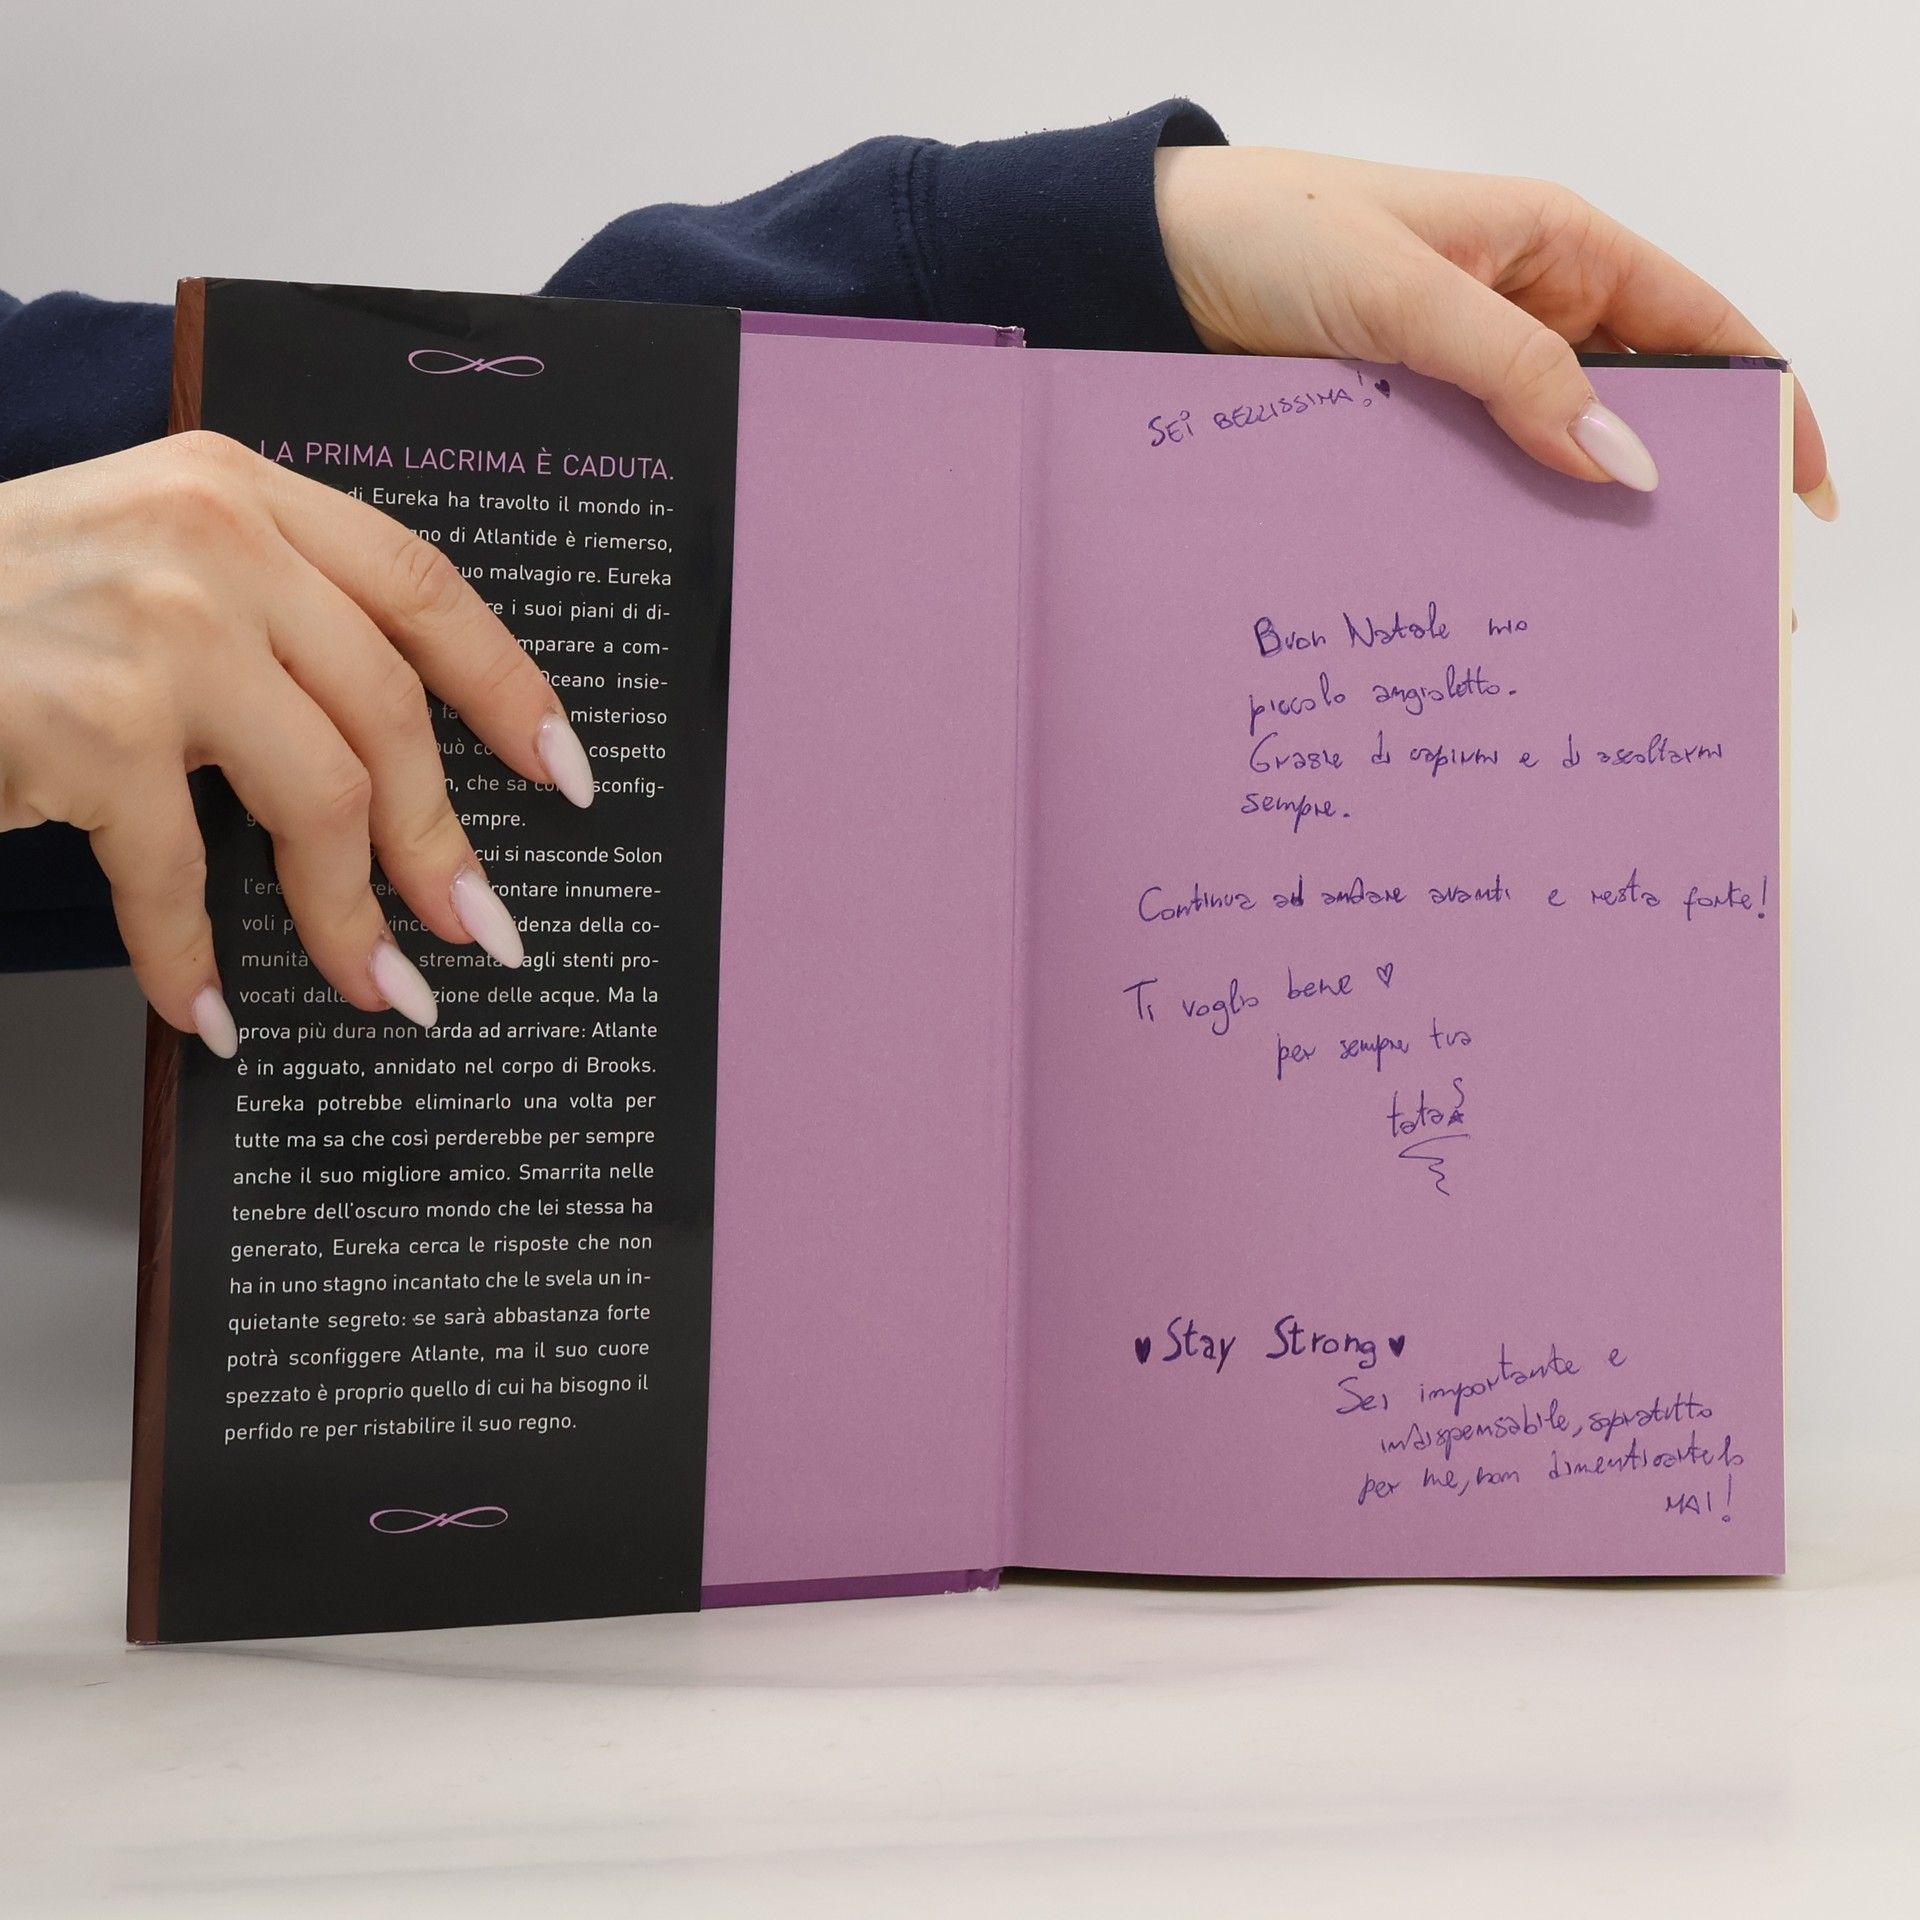 LA PRIMA LACRIMA È CADUTA.
di Eureka ha travolto il mondo in-
di Atlantide è riemerso,
suo malvagio re. Eureka
i suoi piani di di-
imparare a com-
Oceano insie-
misterioso
può cospetto
che sa sconfig-
sempre.
cui si nasconde Solon
innumere-
voli della co-
munità agli stenti pro-
vocati delle acque. Ma la
prova più dura non tarda ad arrivare: Atlante
è in agguato, annidato nel corpo di Brooks.
Eureka potrebbe eliminarlo una volta per
tutte ma sa che così perderebbe per sempre
anche il suo migliore amico. Smarrita nelle
tenebre dell'oscuro mondo che lei stessa ha
generato, Eureka cerca le risposte che non
ha in uno stagno incantato che le svela un in-
quietante segreto: se sarà abbastanza forte
potrà sconfiggere Atlante, ma il suo cuore
spezzato è proprio quello di cui ha bisogno il
perfido re per ristabilire il suo regno.
SEI BELLISSIMA! ♥
Buon Natale mio
piccolo angioletto.
Grazie di capirmi e di ascoltarmi
sempre.
Continua ad andare avanti e resta forte!
Ti voglio bene ♡
per sempre tua
tata
♥ Stay Strong ♥
Sei importante e
indispensabile, sopratutto
per me, non dimenticartelo
MAI!